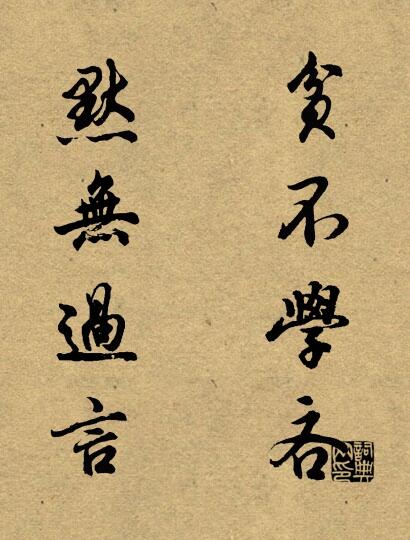 貧不學吝
默無過言
詞典